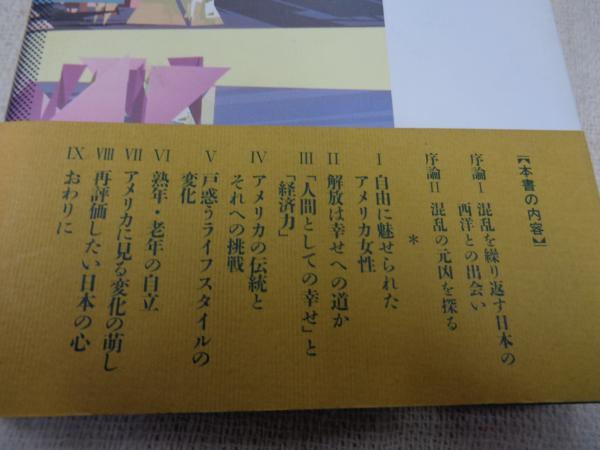 【本書の内容】
序論Ⅰ 混乱を繰り返す日本の
西洋との出会い
序論Ⅱ 混乱の元凶を探る
*
Ⅰ 自由に魅せられた
アメリカ女性
Ⅱ 解放は幸せへの道か
Ⅲ 「人間としての幸せ」と
「経済力」
Ⅳ アメリカの伝統と
それへの挑戦
Ⅴ 戸惑うライフスタイルの
変化
Ⅵ 熟年・老年の自立
Ⅶ アメリカに見る変化の萌し
Ⅷ 再評価したい日本の心
Ⅸ おわりに